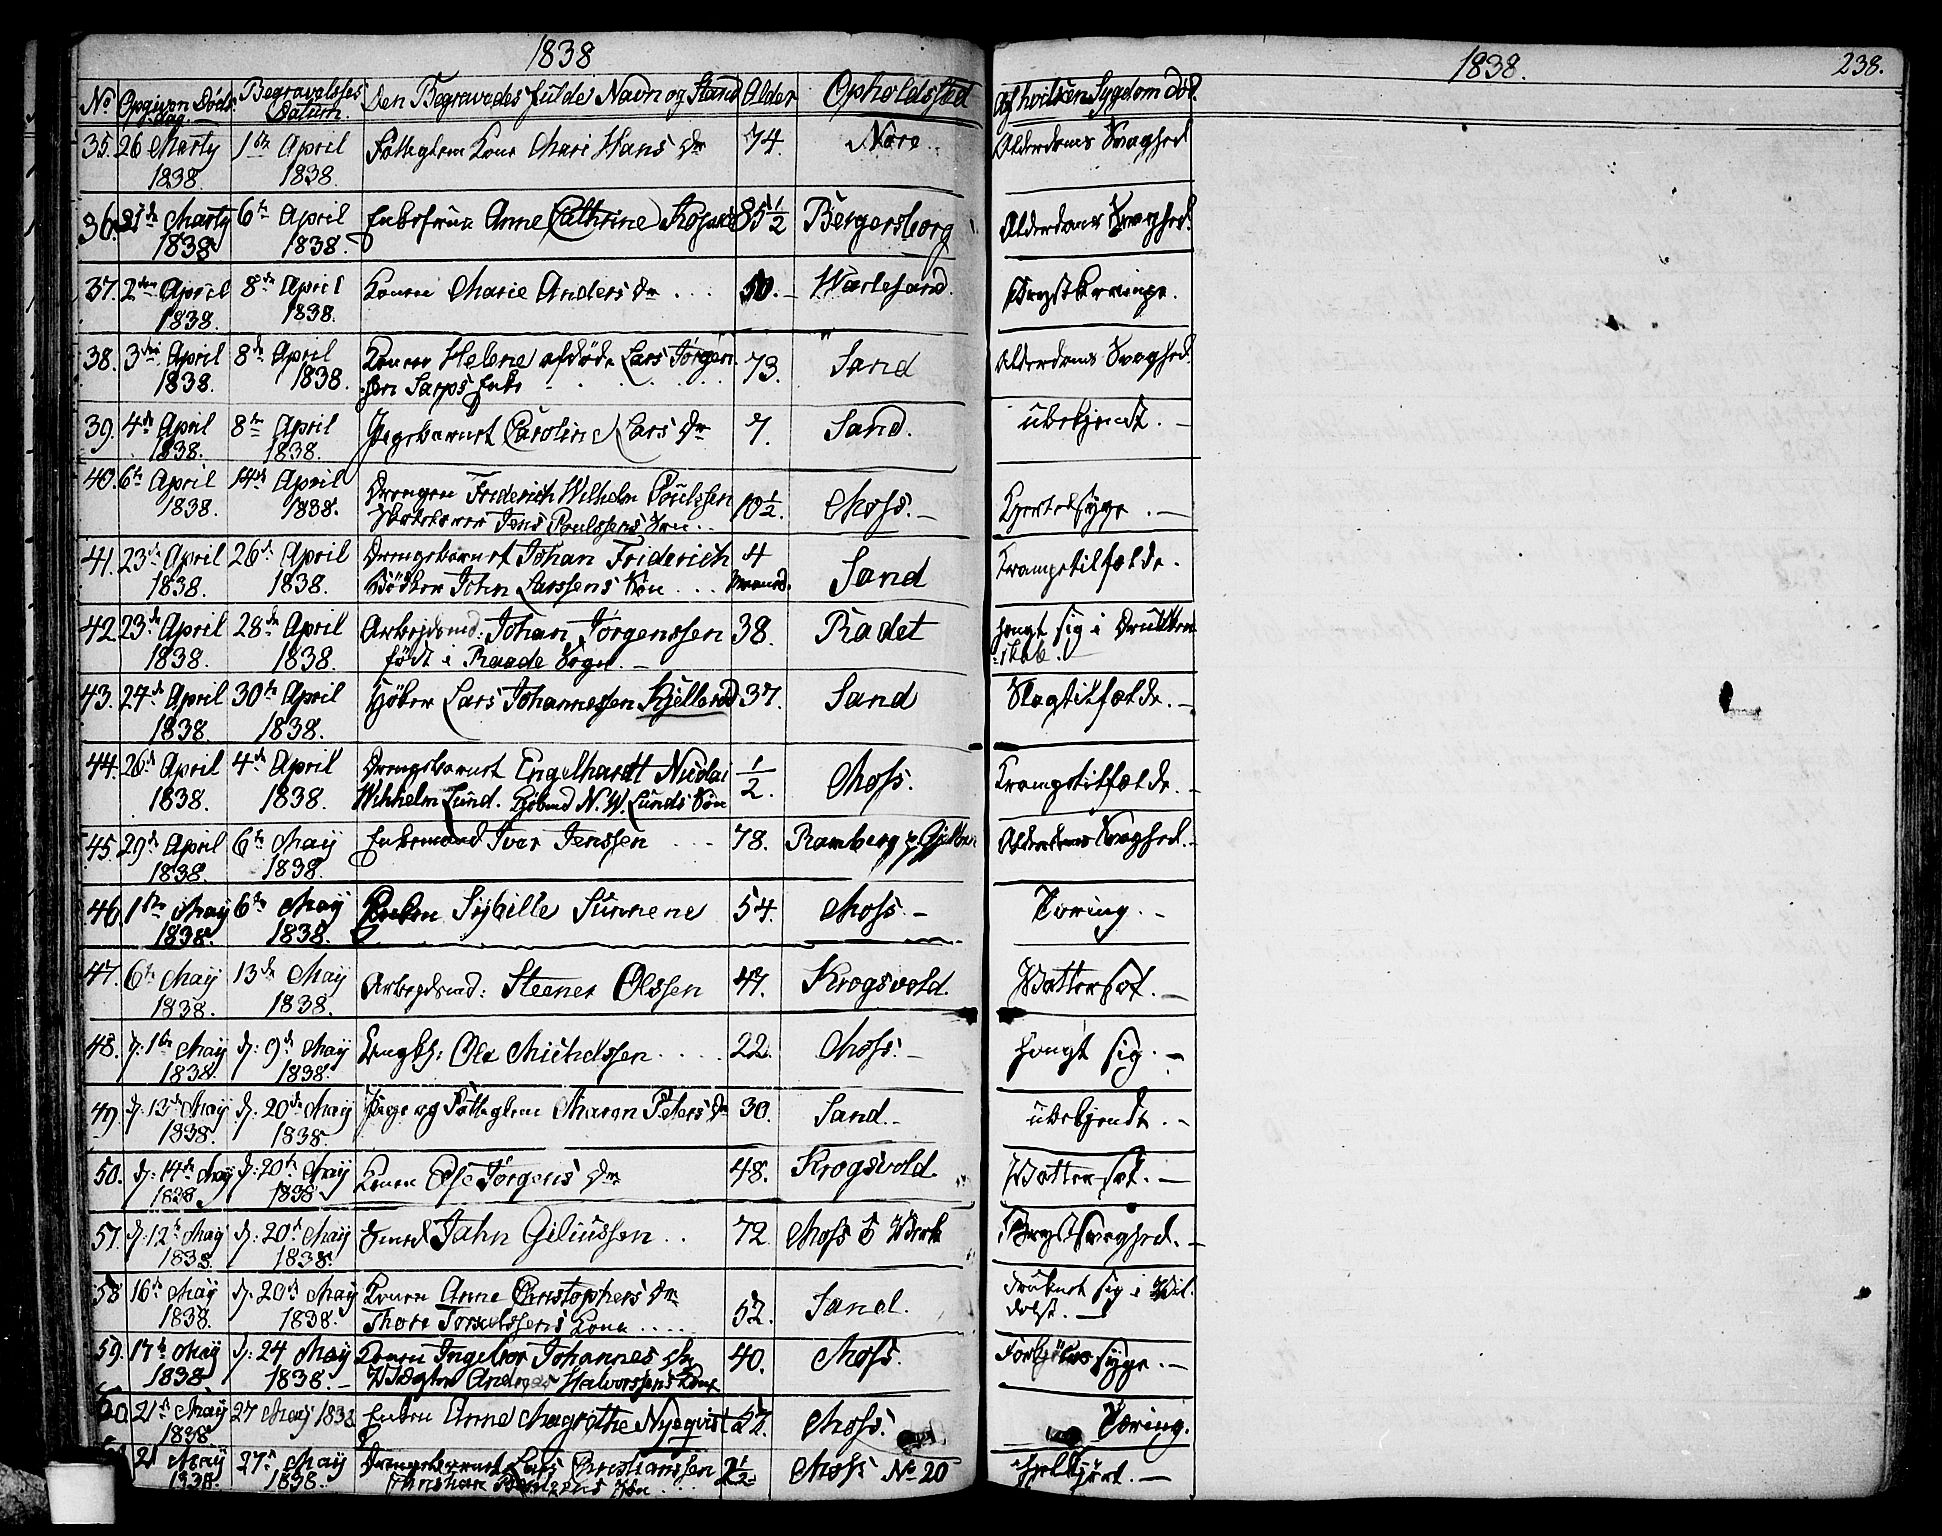 1838
1838.
238.
No Opgiven Døds dag. Begravelses Datum. Den Begravedes fulde Navn og Stand Alder Opholdsted Af hvilken Sygdom død.
35. 26 Marty 1838. 1ste April 1838. Fattiglem Kone Mari Hans Dr 74. Nore Alderdoms Svaghed
36. 31te Marty 1838 6te April 1838. Enkefrue Anne Cathrine 85 1/2 Bergersborg Alderdoms Svaghed.
37. 2den April 1838. 8de April 1838. Konen Marie Anders Dr . . . 50. Wærlesand. Brystkrampe.
38. 3die April 1838. 8de April 1838. Konen Helene afdøde Lars Jørgen
sen Sarps Enke 73. Sand Alderdoms Svaghed.
39. 4de April 1838. 8de April 1838. Pigebarnet Caroline Lars Dr 7. Sand. ubekjendt. —
40. 6te April 1838. 14de April 1838. Drengen Friderich Wilhelm Poulssen
Jens Poulssens Søn . . 10 1/2. Moss. —
41. 23de April 1838. 26de April 1838. Drengebarnet Johan Friderich
Bødker John Larssens Søn . . . 4 Maaned. Sand Krampetilfælde.
42. 23de April 1838. 28de April 1838. Arbejdsmd: Johan Jørgenssen
født i Raade Sogn. — 38. Radet hengt sig i Drukken
skab.
43. 27de April 1838. 30te April 1838. Lars Johannessen Kjellerød 37. Sand Slagtilfælde. —
44. 26de April 1838. 4de April 1838. Drengebarnet Engelhardt Nicolai
Wihhelm Lund. Kjøbmd N. W. Lunds Søn 1/2. Moss. Krampetilfælde. -
45. 29de April 1838. 6te May 1838. Enkemand Iver Jenssen . . . 78. Ramberg Alderdoms Svaghed. -
46. 1ste May 1838. 6te May 1838. Enken Sybille Sunnene 54. Moss. — Tæring. -
47. 6te May 1838. 13de May 1838. Arbejdsmd: Steener Olssen 47. Krogsvold. Wattersot. —
48. d: 1ste May 1838. d: 9de May 1838. Ungk: Ole Michelssen . . . . 22. Moss. — hengt sig. —
49. d: 13de May 1838. d: 20de May 1838. Pige og Fattiglem Maren Peters Dr 30. Sand. - ubekjendt. —
50. d: 14de May 1838 d: 20de May 1838. Konen Else Jørgens Dr 48. Krogsvold. Wattersot. —
57. d: 12te May 1838. d: 20de May 1838. Jahn Giliussen . . 72. Moss Werk Brystsvaghed. —
58 16de May 1838. d: 20de May 1838. Konen Anne Christophers Dr
Thore Kone . . . . 52. Sand. druknet sig i Wil
delse. —
59. 17de May 1838 d: 24 May 1838. — Konen Ingebor Johannes Dr
Vægter Andreas Halvorssens Kone 40. Moss. syge. —
60. 21de May 1838 27 May 1838 Enken Anne Magrethe Nyeqvist 57. Moss. Tæring.
21 May 1838. 27de May 1838. Drengebarnet Lars Christianssen
Søn . . . 2 1/2 Moss No 20